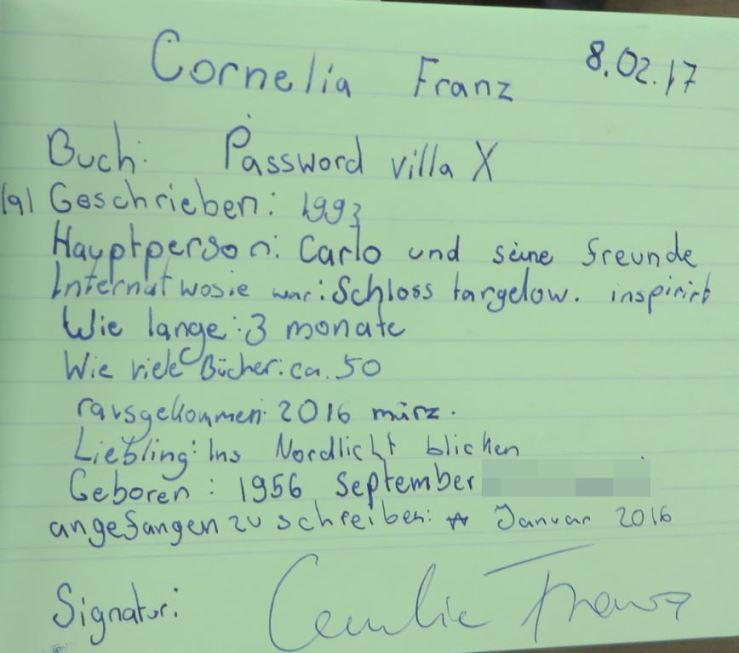 Cornelia Franz 8.02.17
Buch: Password villa X
(9) Geschrieben: 1993
Hauptperson: Carlo und seine freunde
Internat wo sie war: Schloss targelow. inspirirt
Wie lange: 3 monate
Wie viele Bücher: ca. 50
rausgekommen: 2016 märz.
Liebling: Ins Nordlicht blicken
Geboren: 1956 September
angefangen zu schreiben: Januar 2016
Signatur: Cornelia Franz